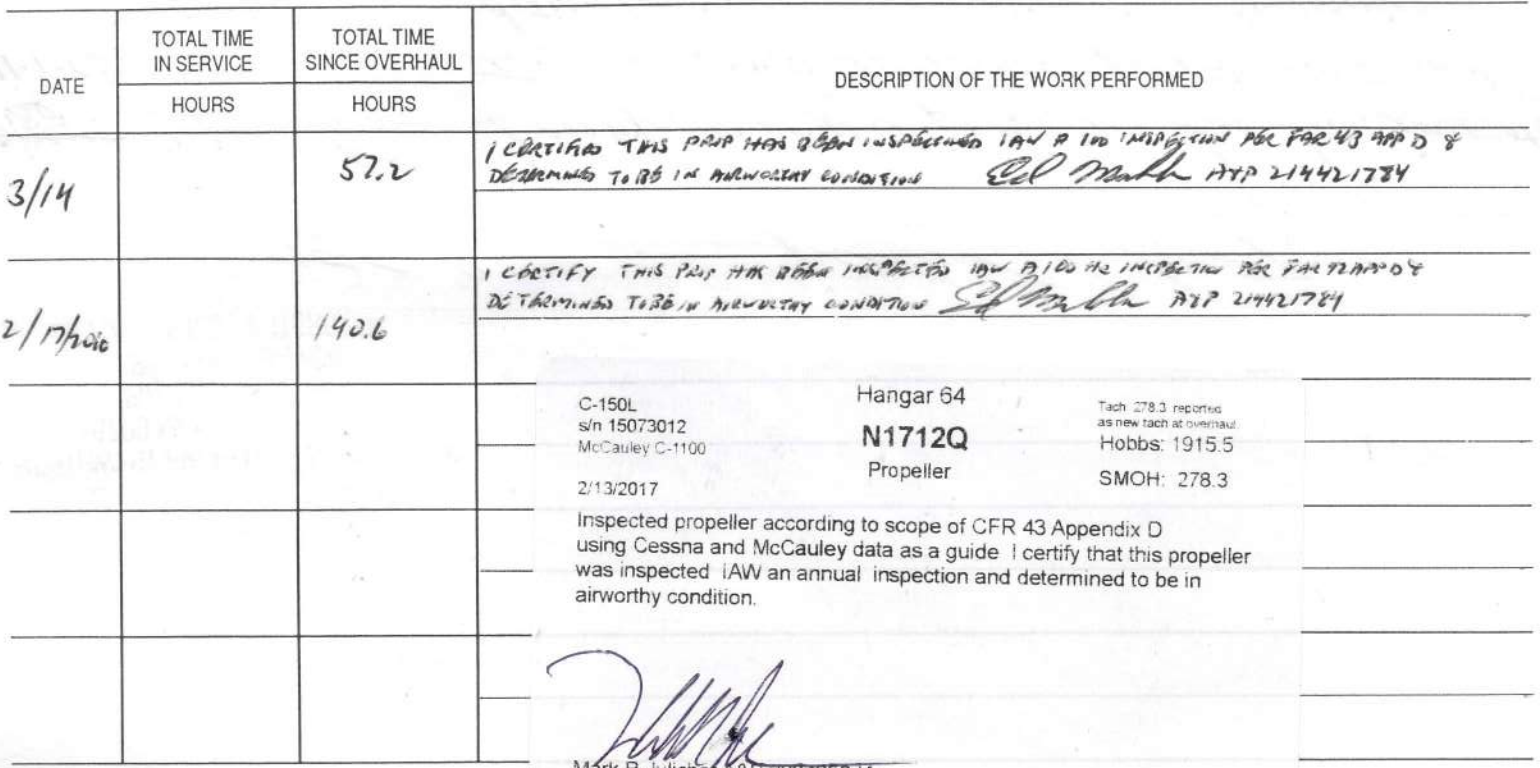 DATE
TOTAL TIME
IN SERVICE
HOURS
TOTAL TIME
SINCE OVERHAUL
HOURS
DESCRIPTION OF THE WORK PERFORMED
3/14
57.2
I CERTIFIED THIS PROP HAS BEEN INSPECTED IAW A 100 INSPECTION PER FAR 43 APP D &
DETERMINED TO BE IN AIRWORTHY CONDITION A&P 214421784
140.6
I CERTIFY THIS PROP HAS BEEN INSPECTED IAW A 100 HR INSPECTION PER FAR APP D &
DETERMINED TO BE IN AIRWORTHY CONDITION A&P 214421784
C-150L
s/n 15073012
McCauley C-1100
2/13/2017
Hangar 64
N1712Q
Propeller
Tach 278.3 reported
as new tach at overhaul
Hobbs: 1915.5
SMOH: 278.3
Inspected propeller according to scope of CFR 43 Appendix D
using Cessna and McCauley data as a guide I certify that this propeller
was inspected IAW an annual inspection and determined to be in
airworthy condition.